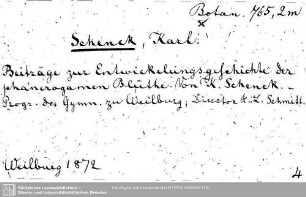 Botan. 765, 2m
Schenck, Karl.
Beiträge zur Entwickelungsgeschichte der
phanerogamen Blüthe. Von K. Schenck. –
Progr. des Gymn. zu Weilburg, Director K. Z. Schmitt.
Weilburg 1872
4
Sächsische Landesbibliothek –
Staats- und Universitätsbibliothek Dresden